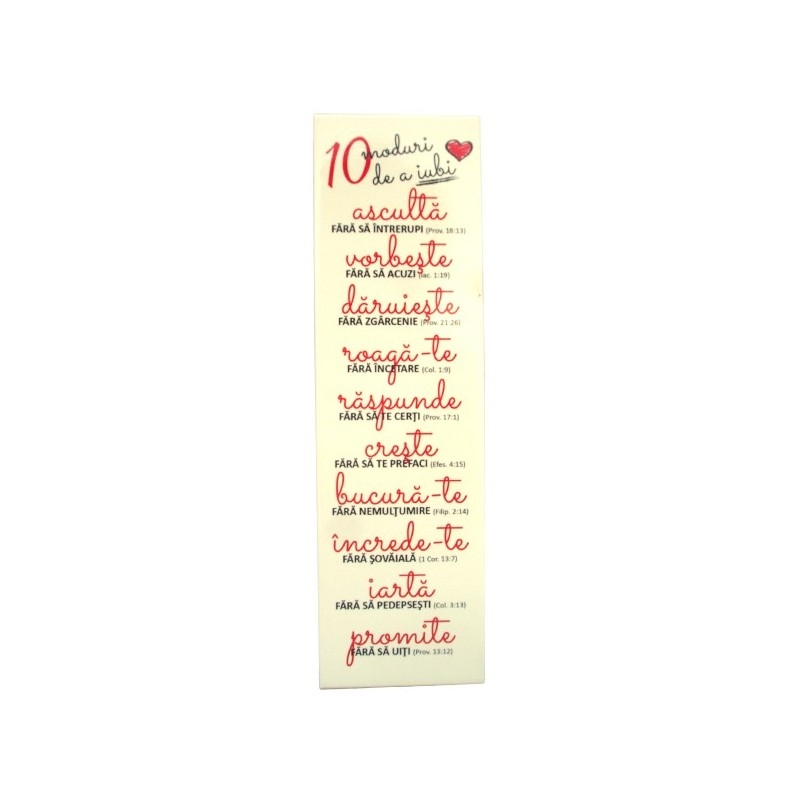 10 moduri
de a iubi
ascultă
FĂRĂ SĂ ÎNTRERUPI (Prov. 18:13)
vorbeşte
FĂRĂ SĂ ACUZI (Iac. 1:19)
dăruieşte
FĂRĂ ZGÂRCENIE (Prov. 21:26)
roagă-te
FĂRĂ ÎNCETARE (Col. 1:9)
răspunde
FĂRĂ SĂ TE CERŢI (Prov. 17:1)
creşte
FĂRĂ SĂ TE PREFACI (Efes. 4:15)
bucură-te
FĂRĂ NEMULŢUMIRE (Filip. 2:14)
încrede-te
FĂRĂ ŞOVĂIALĂ (1 Cor. 13:7)
iartă
FĂRĂ SĂ PEDEPSEŞTI (Col. 3:13)
promite
FĂRĂ SĂ UIŢI (Prov. 13:12)